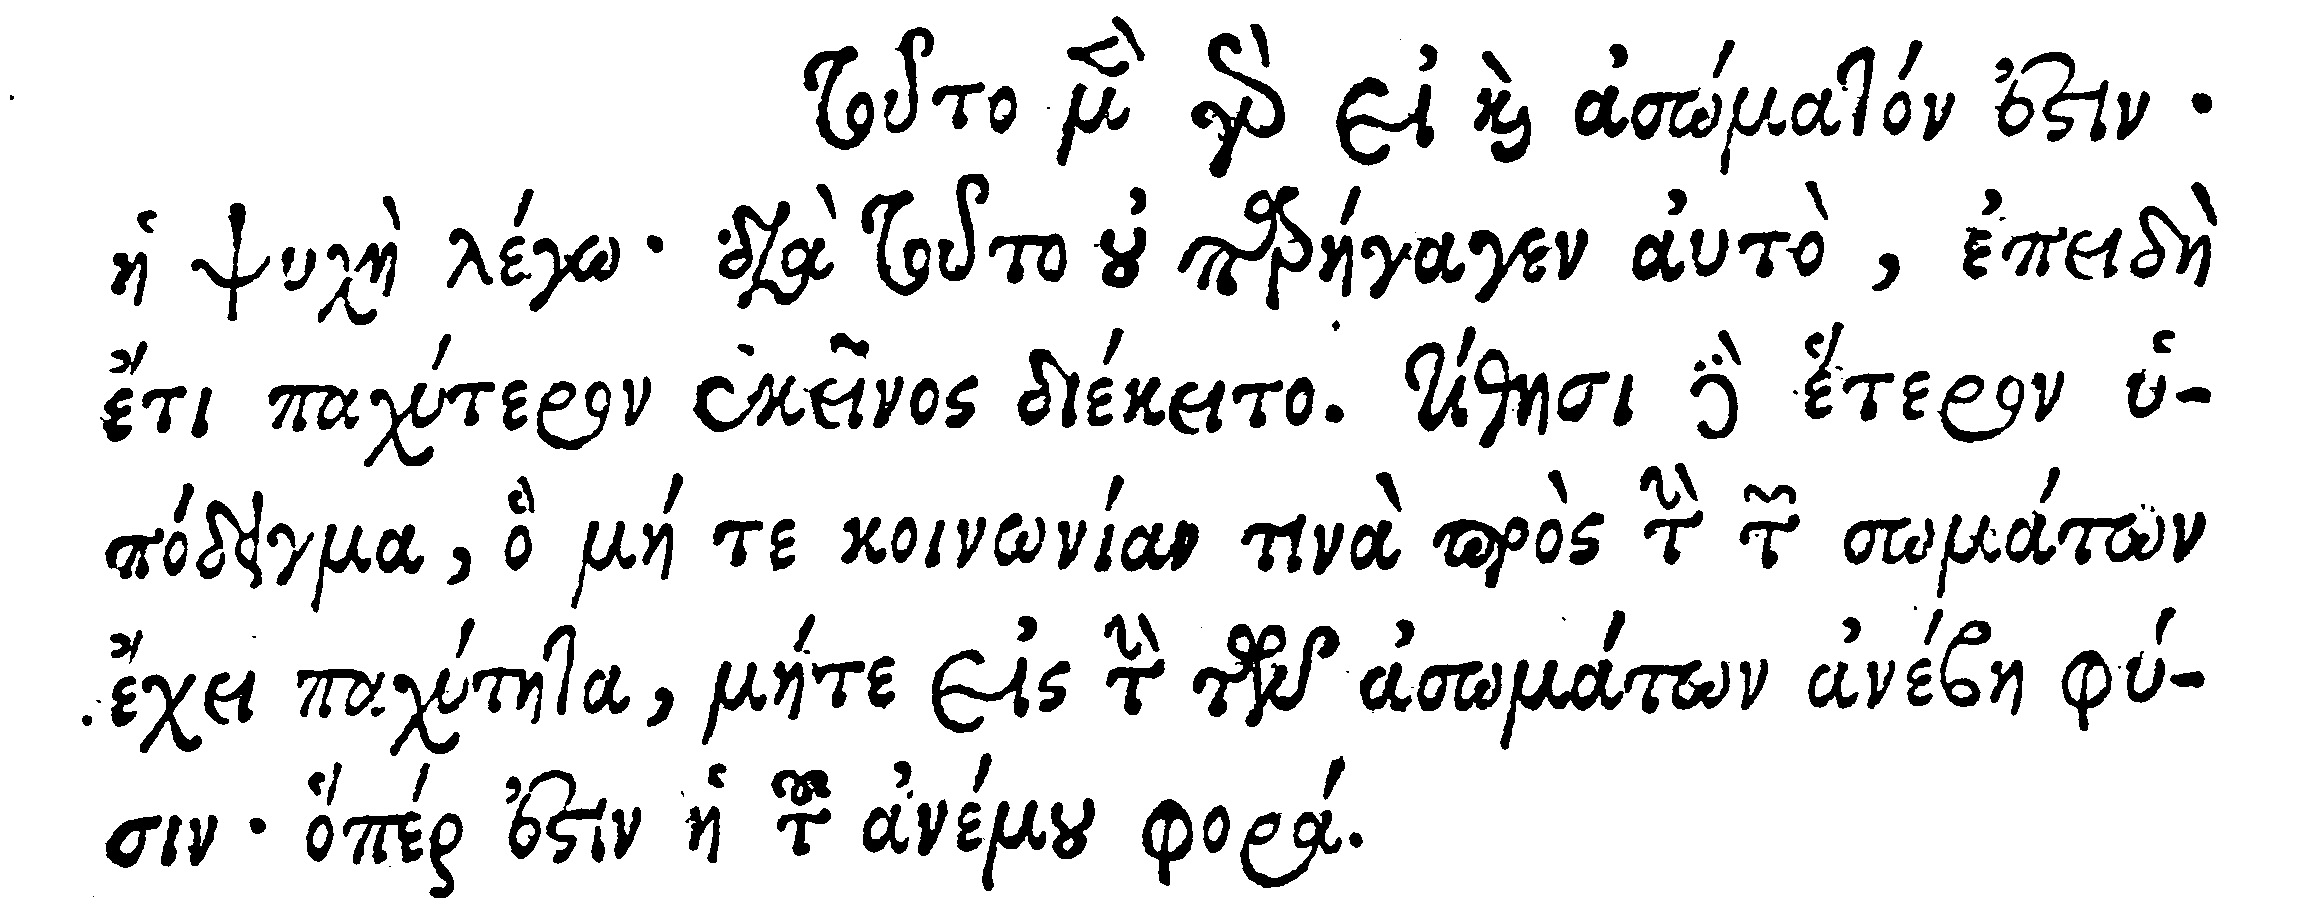 τοῦτο μὲν γὰρ εἰ καὶ ἀσώματόν ἐστιν·
ἡ ψυχὴ λέγω· διὰ τοῦτο οὐ παρήγαγεν αὐτὸ, ἐπειδὴ
ἔτι παχύτερον ἐκεῖνος διέκειτο. τίθησι δὲ ἕτερον ὑ-
πόδειγμα, ὃ μή τε κοινωνίαν τινὰ πρὸς τὴν τῶν σωμάτων
ἔχει παχύτητα, μήτε εἰς τὴν τῶν ἀσωμάτων ἀνέβη φύ-
σιν· ὅπέρ ἐστιν ἡ τοῦ ἀνέμου φορά.